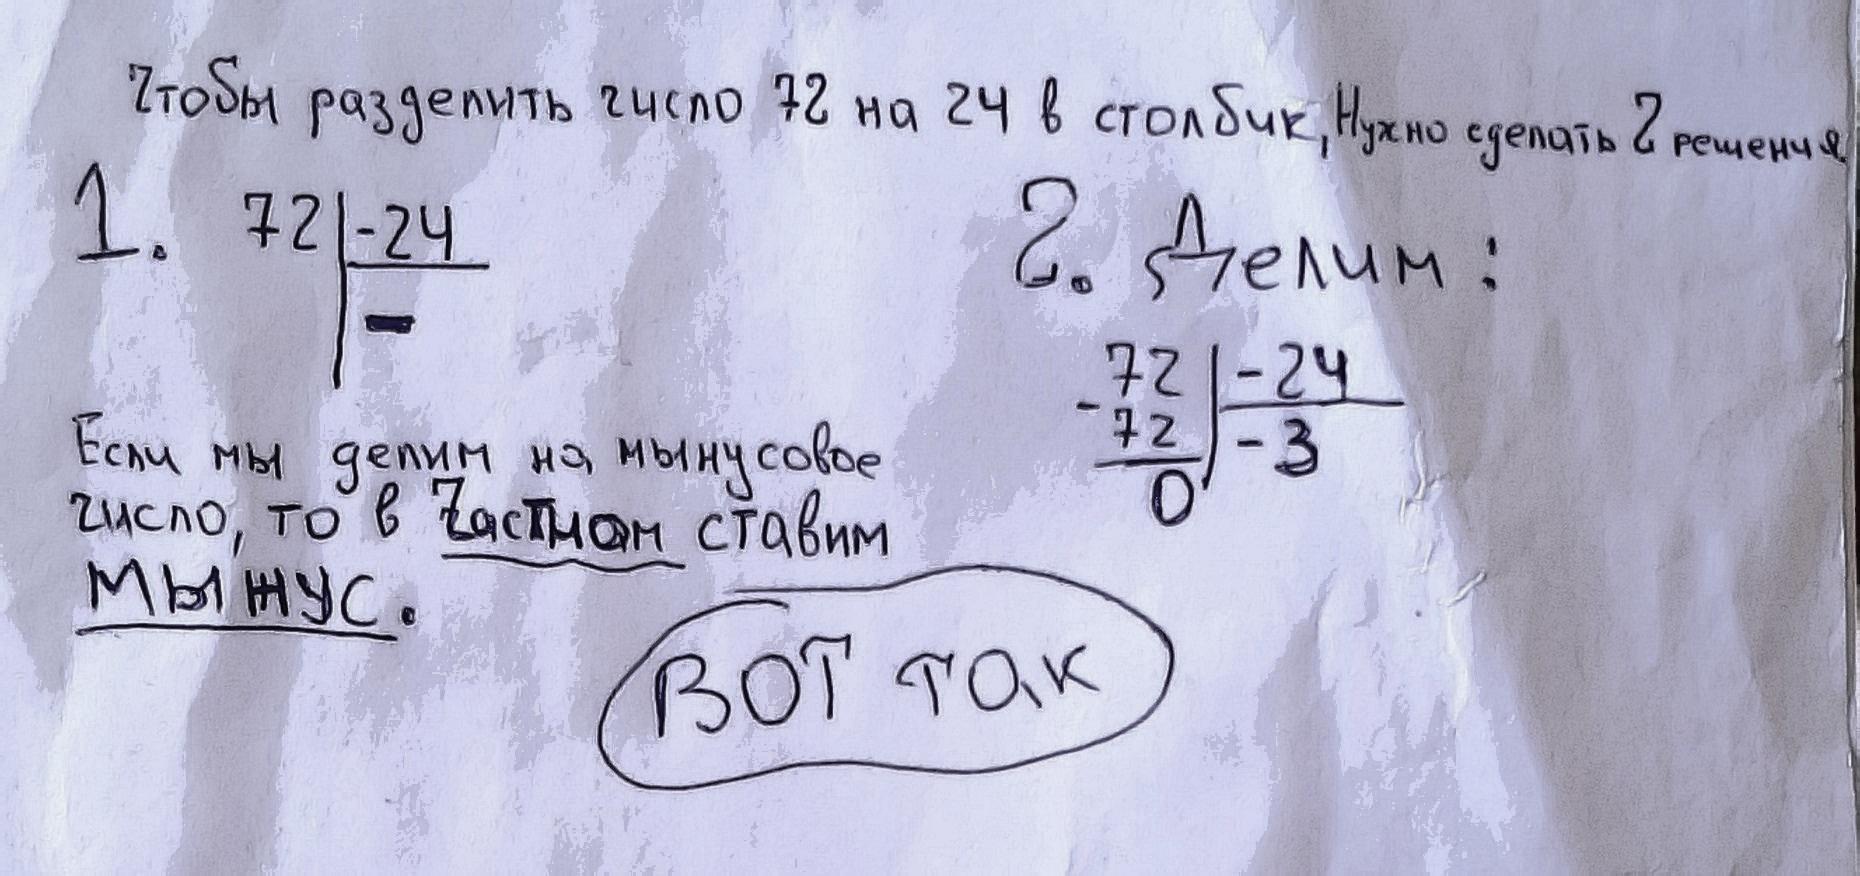 Чтобы разделить число 72 на 24 в столбик, Нужно сделать 2 решения
1. 72 -24
-
Если мы делим на мынусовое
число, то в частном ставим
мынус.
2. Делим:
72 -24
- 72 -3
0
ВОТ так